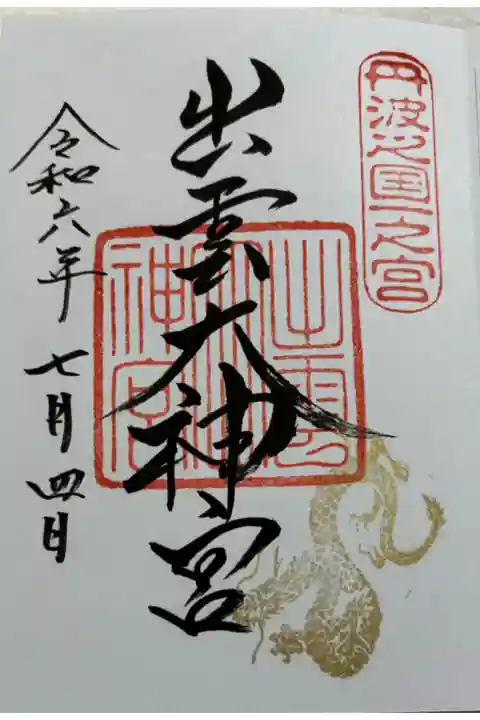 丹波之国一之宮
出雲大神宮
出雲大神宮
令和六年七月四日